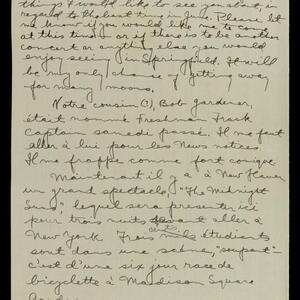 things I would like to see you about, in
regard to the last time in June. Please let
me know if you would like me to come
at this time or if there is to be another
concert or anything else you would
enjoy seeing in Springfield. It will
be my only chance of getting away
for many moons.
Notre cousin (!), Bob Gardener,
était nommé Freshman Track
Captain samedi passé. Il me faut
aller à lui pour les News notices
Il me frappe comme fort conique
Maintenant il y a à New Haven
un grand spectacle, "The Midnight
Sun" lequel sera presenter ici
pour trois nuits avant aller à
New York Trois cents étudiants
sont dans une scène, "support"-
c'est d'une six jour race de
bicyclette à Madison Square